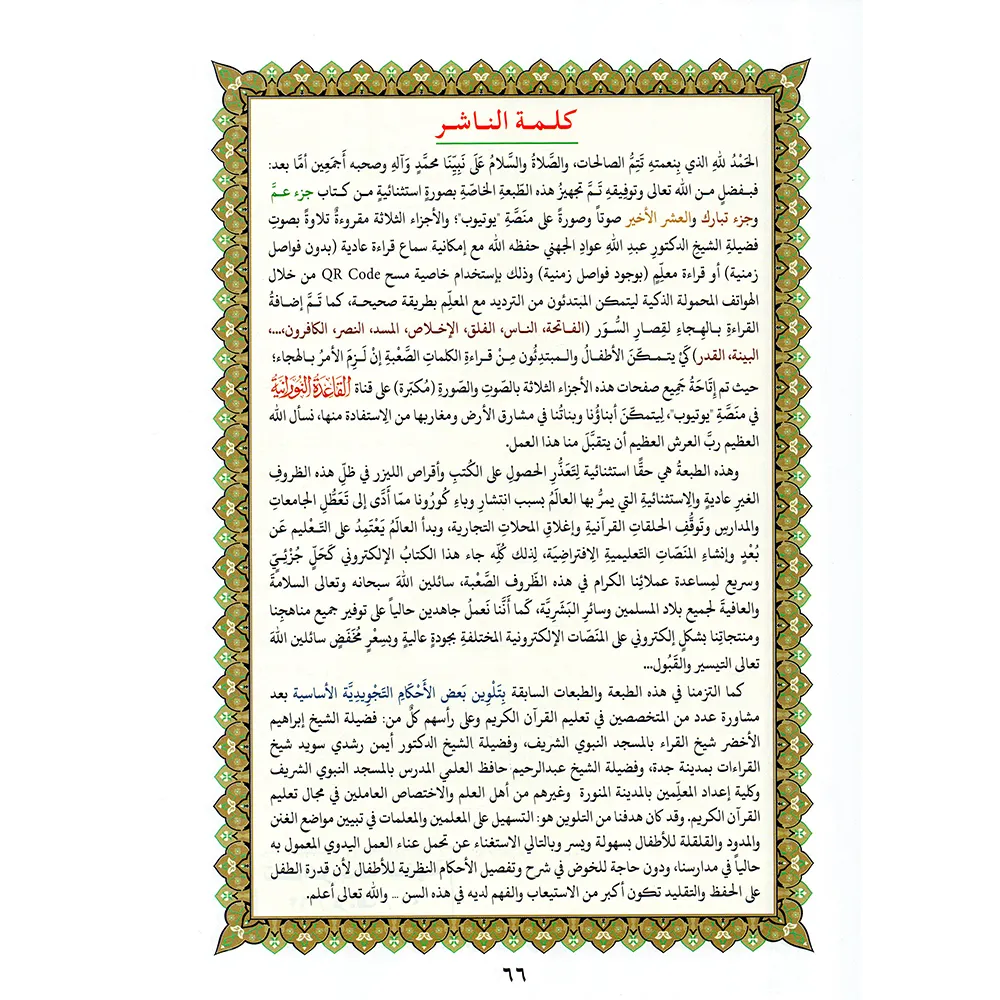 كلمة الناشر
الحَمْدُ للهِ الذي بِنعمتهِ تَتِمُّ الصالحات، والصَّلاةُ والسَّلامُ عَلَى نَبِيِّنَا محمَّدٍ وَآلهِ وصحبه أَجمَعِين أمَّا بعد:
فبفضلٍ من الله تعالى وتوفيقهِ تمَّ تجهيزُ هذه الطَّبعةِ الخاصَّةِ بصورةٍ استثنائيةٍ من كتاب جزء عمَّ
وجزء تبارك والعشر الأخير صوتاً وصورةً على منصَّةِ "يوتيوب"؛ والأجزاء الثلاثة مقروءةٌ تلاوةً بصوتِ
فضيلةِ الشيخِ الدكتورِ عبدِ اللهِ عوادِ الجهني حفظه الله مع إمكانية سماع قراءة عادية (بدون فواصل
زمنية) أو قراءة معلِّم (بوجود فواصل زمنية) وذلك بإستخدام خاصية مسح QR Code من خلال
الهواتف المحمولة الذكية ليتمكن المبتدئون من الترديد مع المعلِّم بطريقة صحيحة، كما تمَّ إضافةُ
القراءةِ بالهِجاءِ لقِصارِ السُّوَر (الفاتحة، الناس، الفلق، الإخلاص، المسد، النصر، الكافرون،...،
البينة، القدر) كَيْ يتمكَّنَ الأطفالُ والمبتدِئُون مِنْ قراءةِ الكلماتِ الصَّعْبةِ إنْ لَزِمَ الأمرُ بالهجاء؛
حيث تم إتَاحَةُ جَمِيع صفحات هذه الأجزاء الثلاثة بالصَّوتِ والصَّورةِ (مُكبّرة) على قناة القَاعِدَةُ النُّورَانِيَّة
في منصَّةِ "يوتيوب"، لِيتمكَّنَ أبناؤُنا وبناتُنا في مشارق الأرض ومغاربها من الاِستفادة منها، نسأل الله
العظيم ربَّ العرش العظيم أن يتقبَّلَ منا هذا العمل.
وهذه الطبعةُ هي حقًّا استثنائية لِتَعَذُّرِ الحصول على الكُتبِ وأقراص الليزر في ظلِّ هذه الظروفِ
الغيرِ عاديةٍ والِاستثنائيةِ التي يمرُّ بها العالَمُ بسبب انتشارِ وباءِ كُورُونا ممّا أدَّى إلى تَعَطُّلِ الجامعاتِ
والمدارسِ وتَوقُّفِ الحلقاتِ القرآنيةِ وإغلاقِ المحلاتِ التجارية، وبدأ العالَمُ يَعْتَمِدُ على التَّعْليم عَن
بُعْدٍ وإنشاءِ المنَصّاتِ التعليميةِ الِافتراضيَّة، لِذلك كُلِّه جاء هذا الكتابُ الإلكتروني كَحَلٍّ جُزْئيٍ
وسريع لمِساعدة عملائِنا الكرام في هذه الظُّروف الصَّعْبة، سائلين اللهَ سبحانه وتعالى السلامةَ
والعافيةَ لجميعِ بلاد المسلمين وسائرِ البَشَرِيَّة، كَما أنَّنا نَعملُ جاهدين حالياً على توفير جميع مناهجِنا
ومنتجاتِنا بشكلٍ إلكتروني على المنَصّات الإلكترونية المختلفةِ بجودةٍ عاليةٍ وبسِعْرٍ مُخَفَّضٍ سائلين اللهَ
تعالى التيسير والقَبُول...
كما التزمنا في هذه الطبعة والطبعات السابقة بِتَلْوِين بَعضِ الأَحْكامِ التَّجْوِيدِيَّة الأساسية بعد
مشاورة عدد من المتخصصين في تعليم القرآن الكريم وعلى رأسهم كلٌ من: فضيلة الشيخ إبراهيم
الأخضر شيخ القراء بالمسجد النبوي الشريف، وفضيلة الشيخ الدكتور أيمن رشدي سويد شيخ
القراءات بمدينة جدة، وفضيلة الشيخ عبدالرحيم حافظ العلمي المدرس بالمسجد النبوي الشريف
وكلية إعداد المعلِّمين بالمدينة المنورة وغيرهم من أهل العلم والاختصاص العاملين في مجال تعليم
القرآن الكريم. وقد كان هدفنا من التلوين هو: التسهيل على المعلمين والمعلمات في تبيين مواضع الغنن
والمدود والقلقلة للأطفال بسهولة ويسر وبالتالي الاستغناء عن تحمل عناء العمل اليدوي المعمول به
حالياً في مدارسنا، ودون حاجة للخوض في شرح وتفصيل الأحكام النظرية للأطفال لأن قدرة الطفل
على الحفظ والتقليد تكون أكبر من الاستيعاب والفهم لديه في هذه السن ... والله تعالى أعلم.
٦٦